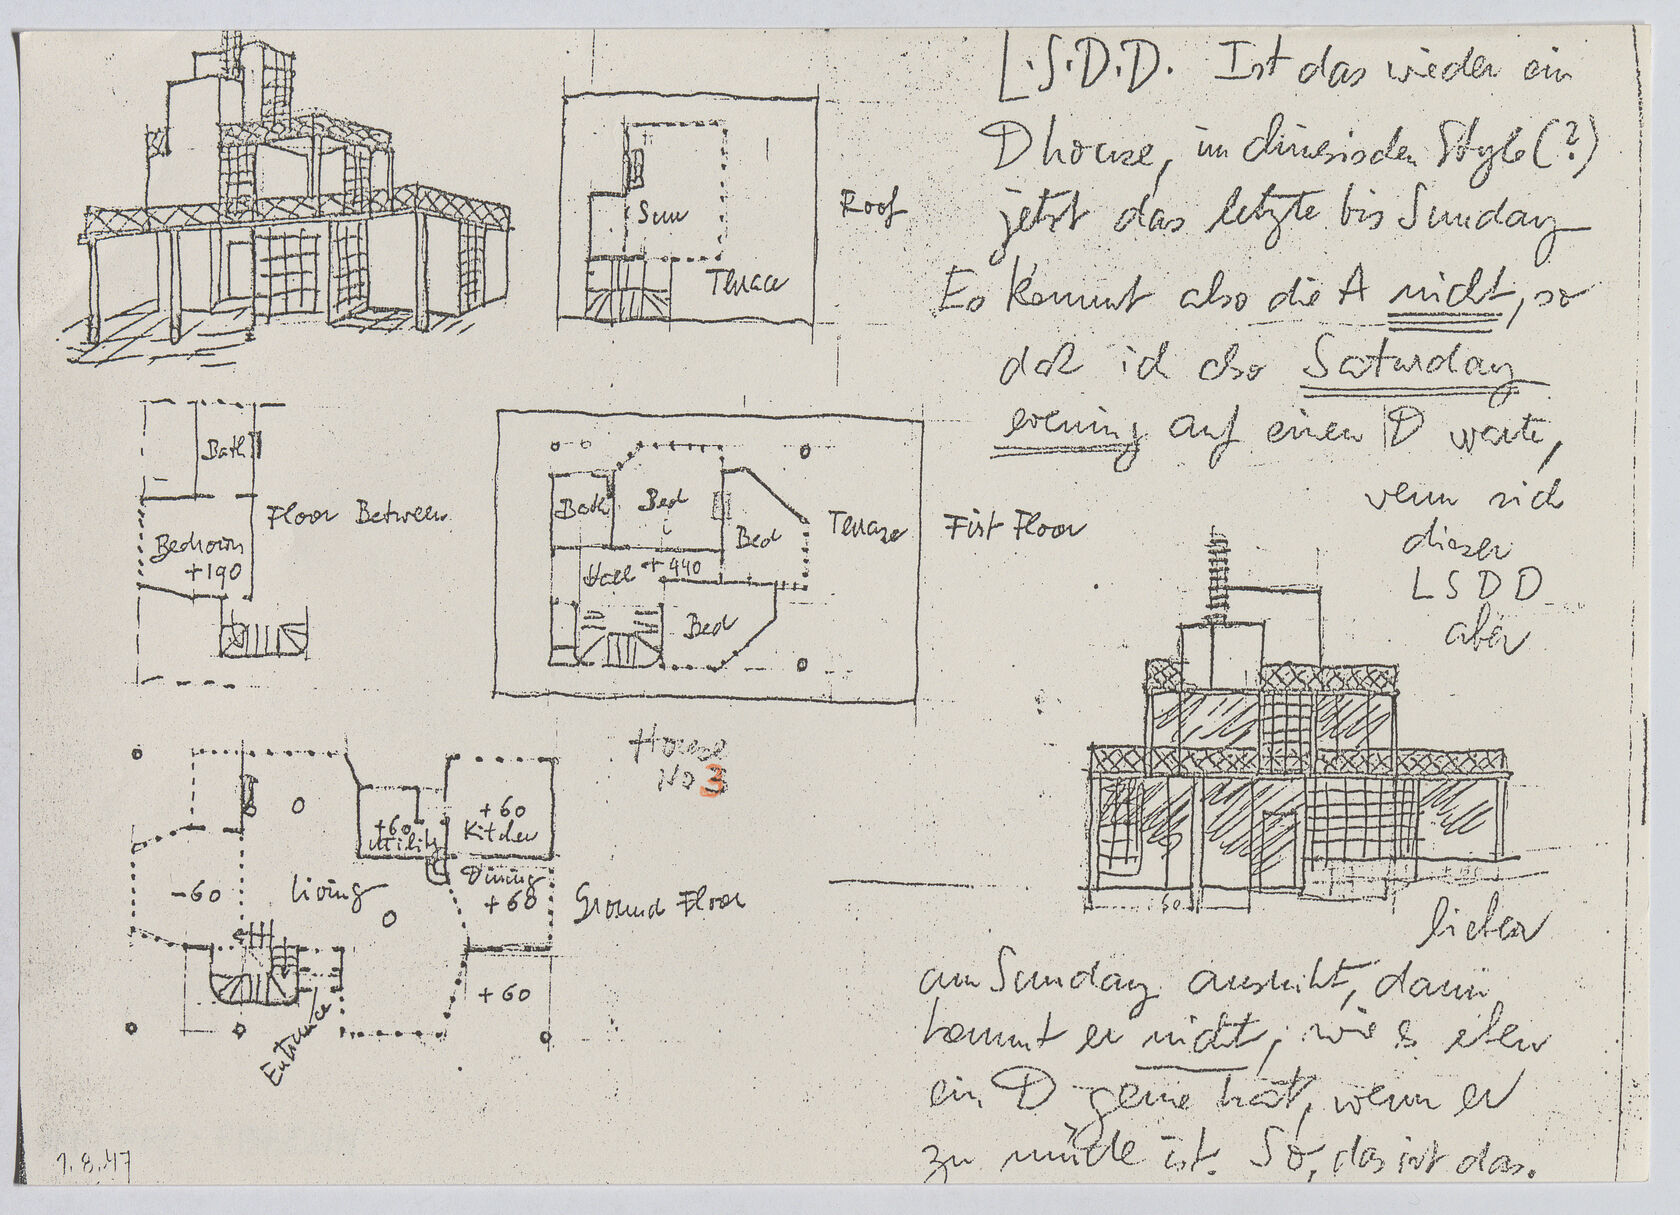 L.S.D.D. Ist das wieder ein
Dhouse, im chinesischen Style (?)
jetzt das letzte bis Sunday
Es kommt also die A nicht, so
daß ich also Saturday
evening auf einen D warte,
wenn sich
dieser
LSDD
aber
lieber
am Sunday ausruht, dann
kommt er nicht, wie es eben
ein D gerne hat, wenn er
zu müde ist. So, das ist das.
Sun
Terrace
Roof
Bath
Bedroom
+190
Floor Between
Bath
Bed
Bed
Hall +440
Bed
Terrase
First Floor
House
No 3
+60
Utility
+60
Kitchen
Dining
+60
-60
Living
+60
Ground Floor
Entrance
60
1.8.47